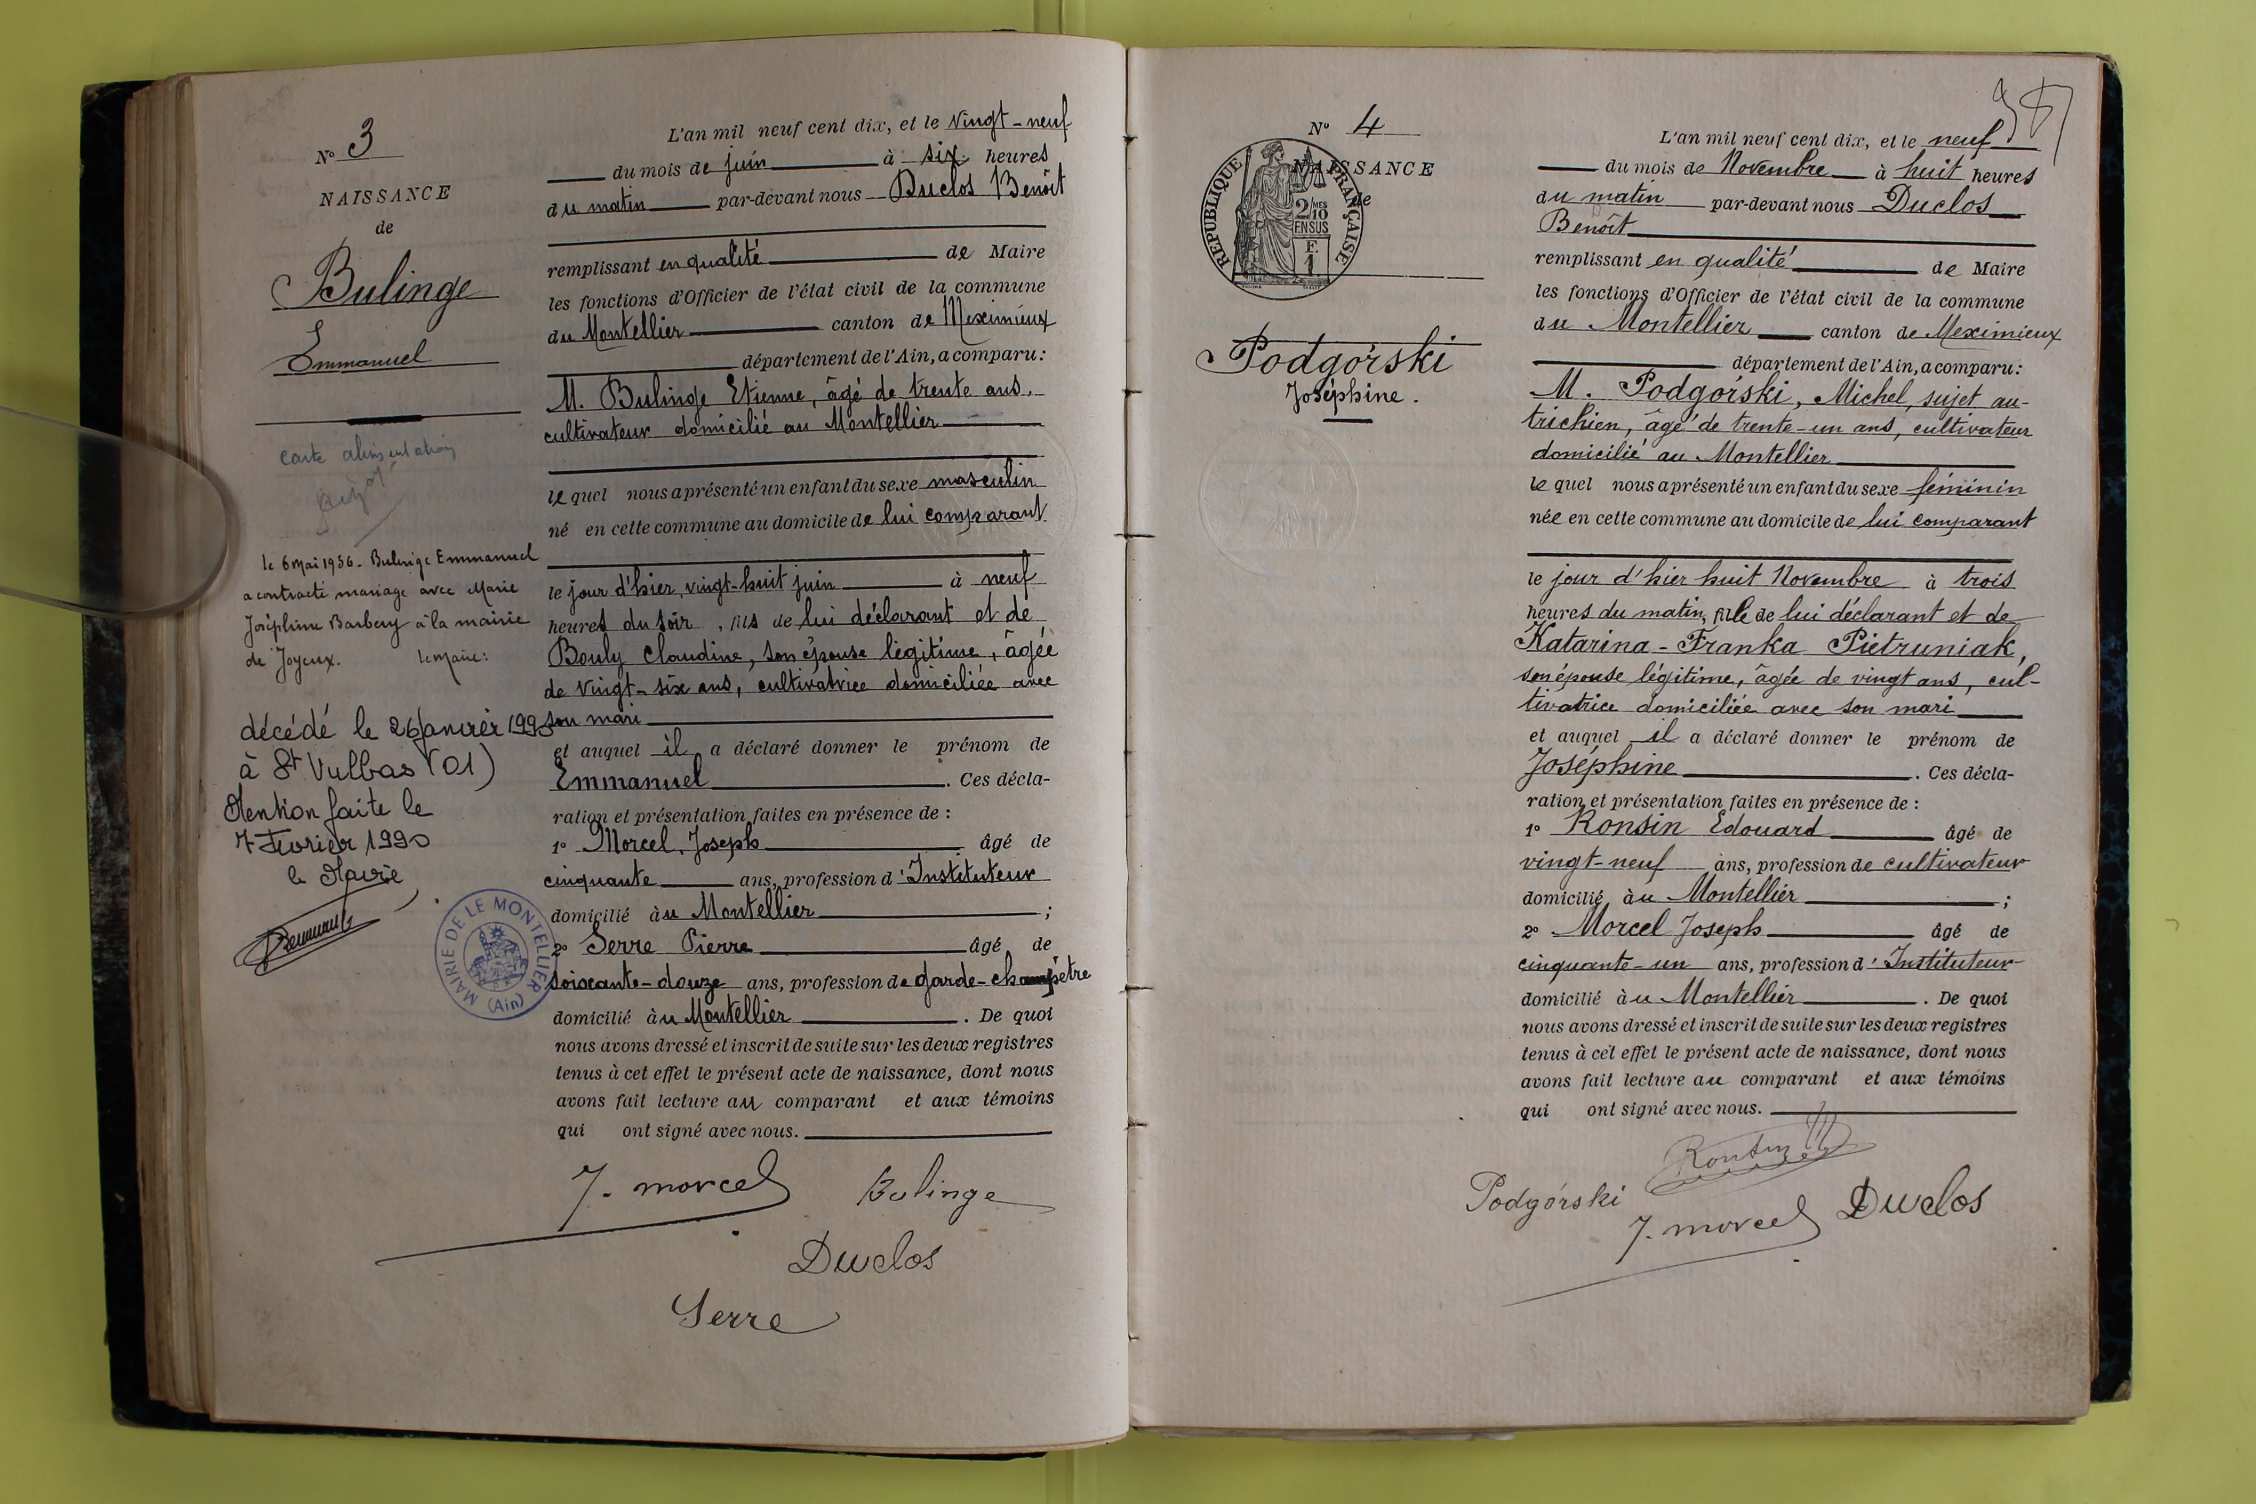 Nº 3
NAISSANCE
de
Bulinge
Emmanuel
carte alimentation
le 6 mai 1936 - Bulinge Emmanuel
a contracté mariage avec Marie
Joséphine Barbery à la mairie
de Joyeux. le maire:
décédé le 26 Janvier 1990
à St Vulbas (01)
Mention faite le
7 Février 1990
le Maire
MAIRIE DE LE MONTELLIER
(Ain)
L'an mil neuf cent dix, et le vingt-neuf
du mois de juin à six heures
du matin par-devant nous Duclos Benoit
remplissant en qualité de Maire
les fonctions d'Officier de l'état civil de la commune
du Montellier canton de Meximieux
département de l'Ain, a comparu:
M. Bulinge Etienne, âgé de trente ans,
cultivateur domicilié au Montellier
le quel nous a présenté un enfant du sexe masculin
né en cette commune au domicile de lui comparant
le jour d'hier, vingt-huit juin à neuf
heures du soir, fils de lui déclarant et de
Bouly Claudine, son épouse légitime, âgée
de vingt-six ans, cultivatrice domiciliée avec
son mari
et auquel il a déclaré donner le prénom de
Emmanuel. Ces décla-
ration et présentation faites en présence de :
1º Morcel, Joseph âgé de
cinquante ans, profession d'Instituteur
domicilié àu Montellier ;
2º Serre Pierre âgé de
soixante-douze ans, profession de garde-champêtre
domicilié àu Montellier. De quoi
nous avons dressé et inscrit de suite sur les deux registres
tenus à cet effet le présent acte de naissance, dont nous
avons fait lecture au comparant et aux témoins
qui ont signé avec nous.
J. morcel Bulinge
Duclos
Serre
387
Nº 4
NAISSANCE
de
RÉPUBLIQUE FRANÇAISE
2/10 MES
EN SUS
F.
1
Podgórski
Joséphine.
L'an mil neuf cent dix, et le neuf
du mois de Novembre à huit heures
du matin par-devant nous Duclos
Benoît
remplissant en qualité de Maire
les fonctions d'Officier de l'état civil de la commune
du Montellier canton de Meximieux
département de l'Ain, a comparu:
M. Podgórski, Michel, sujet au-
trichien, âgé de trente-un ans, cultivateur
domicilié au Montellier
le quel nous a présenté un enfant du sexe féminin
née en cette commune au domicile de lui comparant
le jour d'hier huit Novembre à trois
heures du matin, fille de lui déclarant et de
Katarina-Franka Pietruniak,
son épouse légitime, âgée de vingt ans, cul-
tivatrice domiciliée avec son mari
et auquel il a déclaré donner le prénom de
Joséphine. Ces décla-
ration et présentation faites en présence de :
1º Ronsin Edouard âgé de
vingt-neuf ans, profession de cultivateur
domicilié àu Montellier ;
2º Morcel Joseph âgé de
cinquante-un ans, profession d'Instituteur
domicilié àu Montellier. De quoi
nous avons dressé et inscrit de suite sur les deux registres
tenus à cet effet le présent acte de naissance, dont nous
avons fait lecture au comparant et aux témoins
qui ont signé avec nous.
Ronsin
Podgórski
J. morcel Duclos